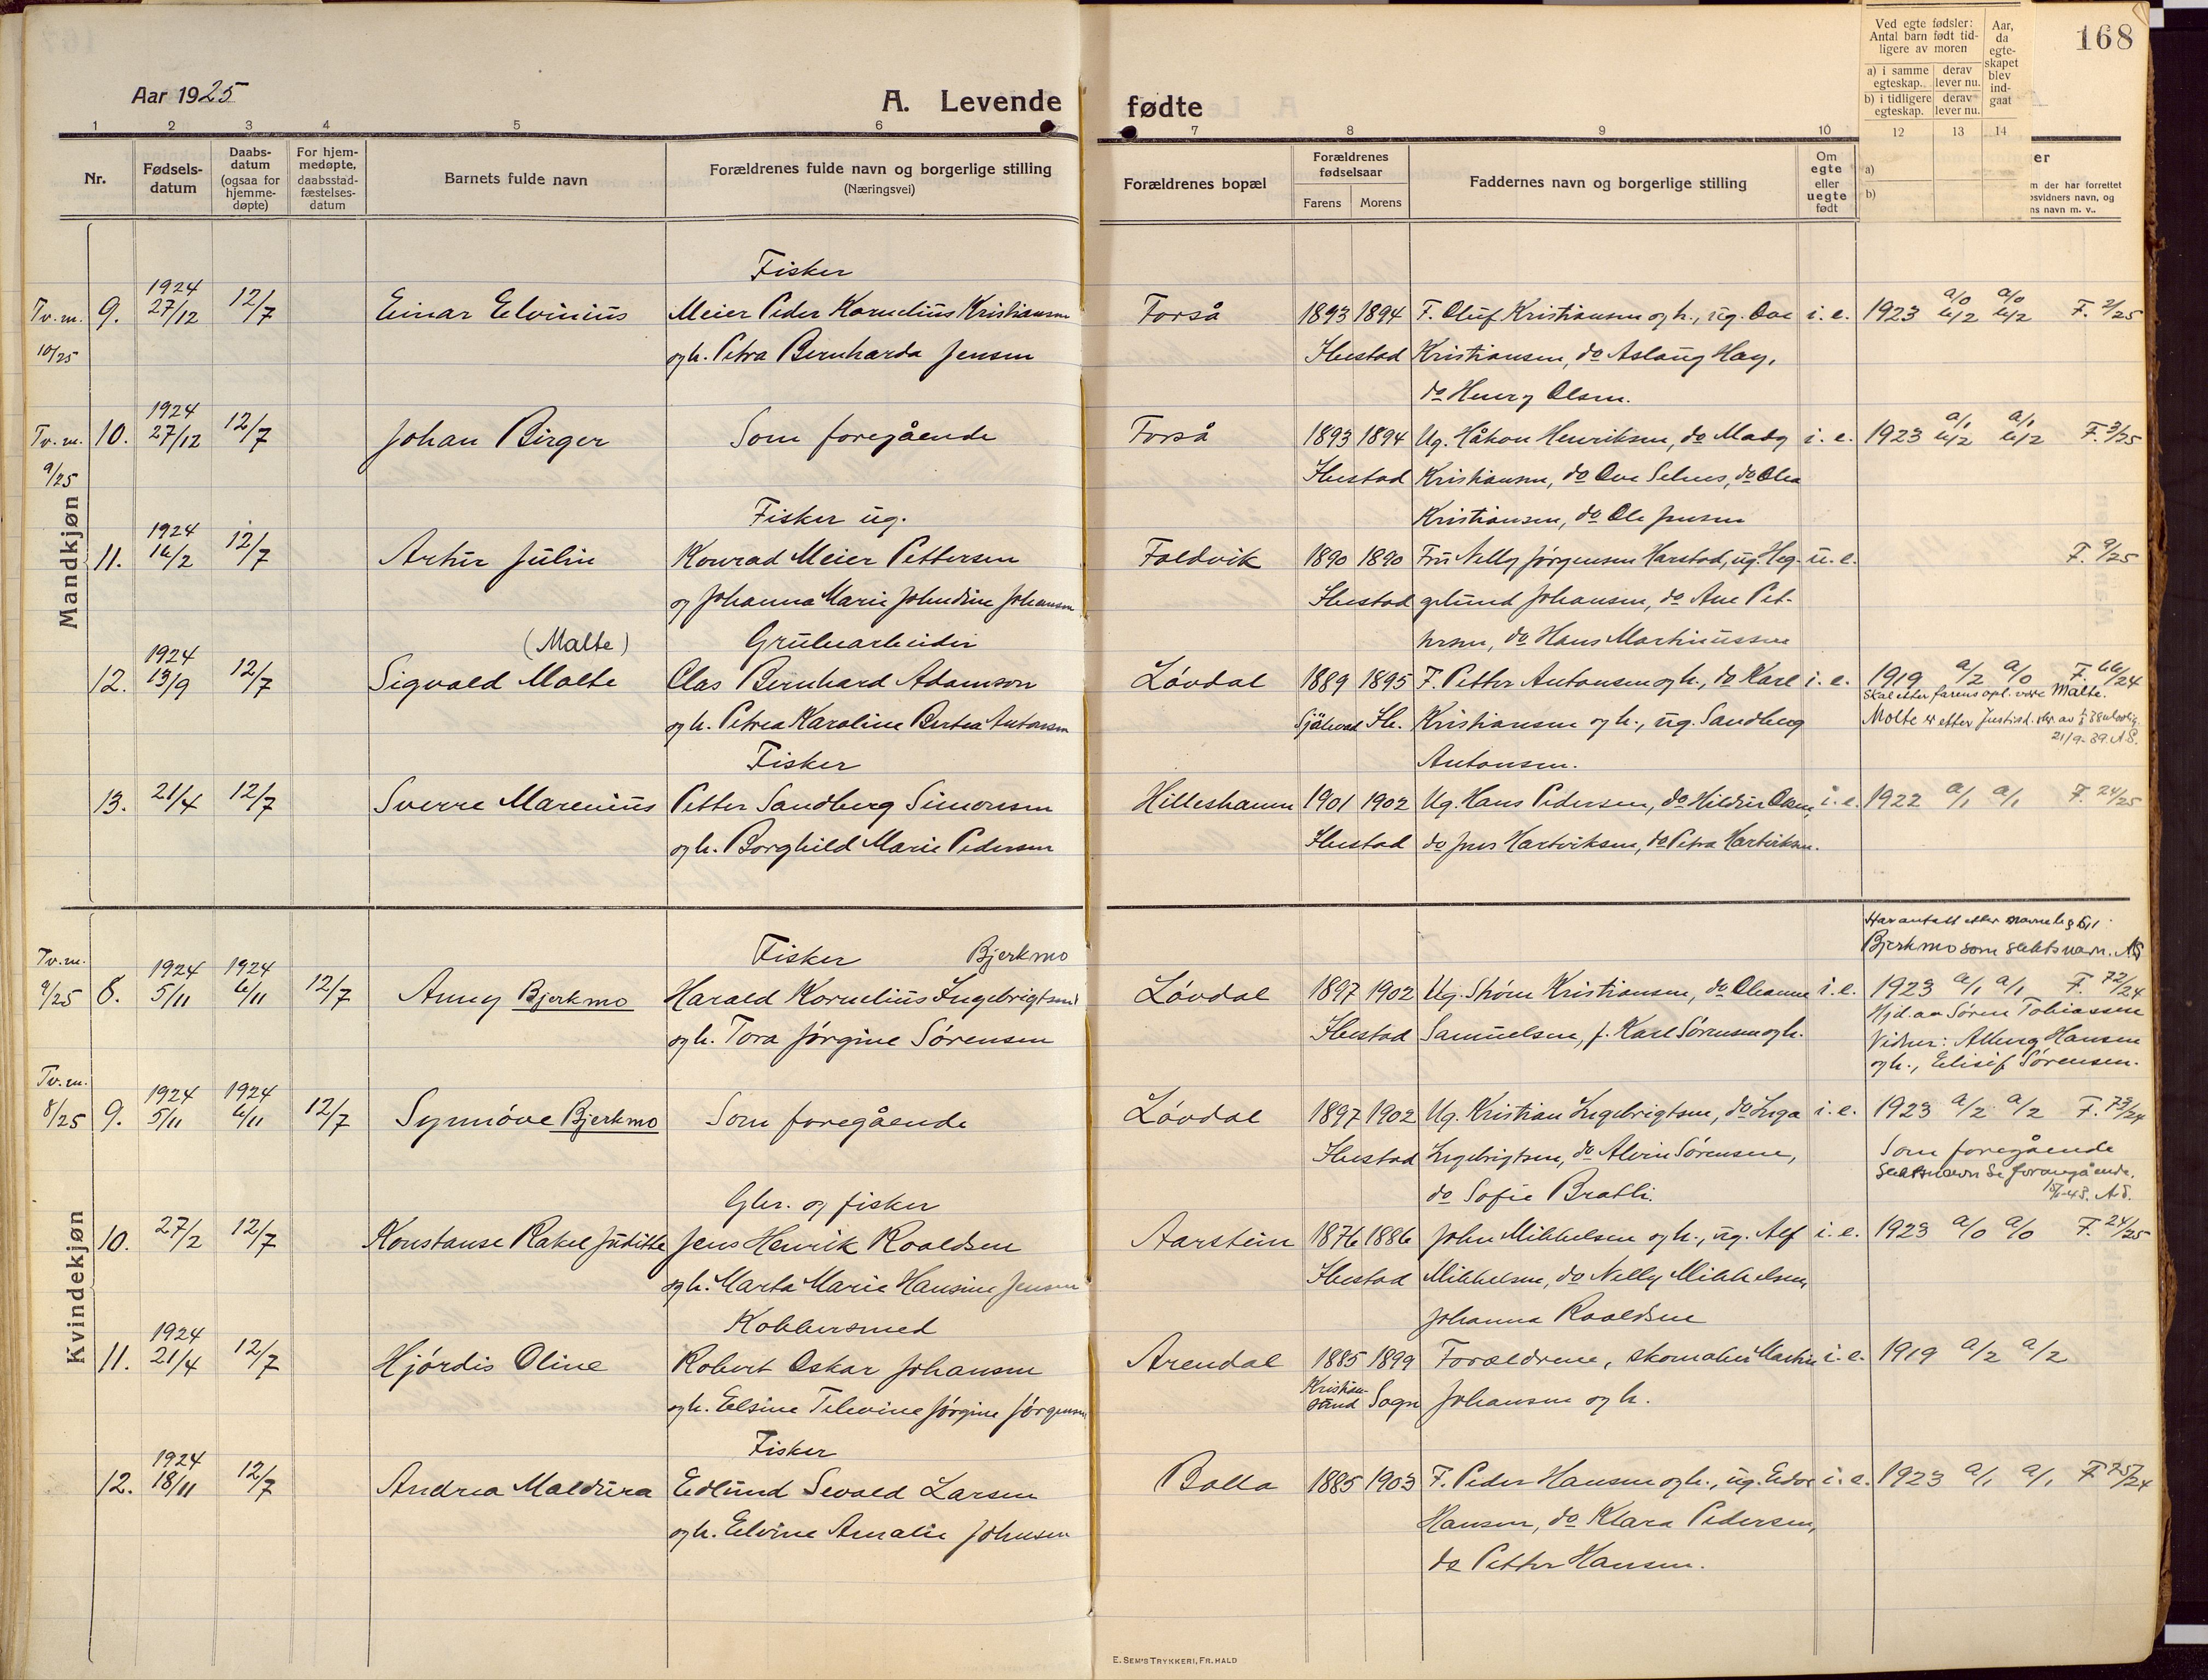 168
Aar 1925
A. Levende fødte
1 2 3 4 5 6 7 8 9 10 12 13 14
Nr.
Fødsels-
datum
Daabs-
datum
(ogsaa for
hjemme-
døpte)
For hjem-
medøpte,
daabsstad-
fæstelses-
datum
Barnets fulde navn
Forældrenes fulde navn og borgerlige stilling
(Næringsvei)
Forældrenes bopæl
Forældrenes
fødselsaar
Farens Morens
Faddernes navn og borgerlige stilling
Om
egte
eller
uegte
født
Ved egte fødsler:
Antal barn født tid-
ligere av moren
a) i samme egteskap.
derav lever nu.
b) i tidligere egteskap.
derav lever nu.
Aar,
da
egte-
skapet
blev
ind-
gaat
a)
b)
er
m der har forrettet
svidners navn, og
ns navn m. v..
Mandkjøn
Fisker
Tv.m. 9. 1924 27/12 12/7 Einar Elvinius Meier Peder Kornelius Kristiansen Forså 1893 1894 F. Oluf Kristiansen og h., ug. Ove i. e. 1923 a/0 b/2 a/0 b/2 F. 2/25
10/25 og h. Petra Bernharda Jensen Ibestad Kristiansen, do Aslaug Hay,
do Henry Olsen.
Tv.m. 10. 1924 27/12 12/7 Johan Birger Som foregående Forså 1893 1894 Ug. Håkon Henriksen, do Mady i. e. 1923 a/1 b/2 a/1 b/2 F. 3/25
9/25 Ibestad Kristiansen, do Ove Selnes, do Olea
Fisker ug. Kristiansen, do Ole Jensen
11. 1924 16/2 12/7 Artur Julin Konrad Meier Pettersen Foldvik 1890 1890 Fru Nelly Jørgensen Harstad, ug. Heg- u. e. F. 9/25
og Johanna Marie Johndine Johansen Ibestad gelund Johansen, do Ane Pet-
(Malte) Grubearbeider tersen, do Hans Martinussen
12. 1924 13/9 12/7 Sigvald Molte Clas Bernhard Adamson Løvdal 1889 1895 F. Petter Antonsen og h., do Karl i. e. 1919 a/2 a/0 F. 66/24
Skal etter farens opl. være Malte.
og h. Petrea Karoline Bertea Antonsen Själevad Ib. Kristiansen og h., ug. Sandberg Molte er etter Justisd. skr. av
21/9-39. A.S.
Fisker Antonsen.
13. 21/4 12/7 Sverre Marenius Petter Sandberg Simonsen Hilleshamn 1901 1902 Ug. Hans Pedersen, do Hildur Olsen, i. e. 1922 a/1 a/1 F. 24/25
og h. Borghild Marie Pedersen Ibestad do Jens Hartviksen, do Petra Hartviksen.
Kvindekjøn
Har antatt etter navnelov
Bjerkmo som slektsnavn. AS
Tv.m. Fisker Bjerkmo
9/25 8. 1924 5/11 1924 6/11 12/7 Anny Bjerkmo Harald Kornelius Ingebrigtsen Løvdal 1897 1902 Ug. Strøm Kristiansen, do Oleanne i. e. 1923 a/1 a/1 F. 72/24
Hjd. av Søren Tobiassen
og h. Tora Jørgine Sørensen Ibestad Samuelsen, f. Karl Sørensen og h. Vidner: Alberg Hansen
og h., Elisif Sørensen.
Tv.m.
8/25 9. 1924 5/11 1924 6/11 12/7 Synnøve Bjerkmo Som foregående Løvdal 1897 1902 Ug. Kristian Ingebrigtsen, do Inga i. e. 1923 a/2 a/2 F. 73/24
Ibestad Ingebrigtsen, do Alvin Sørensen, Som foregående
Slektsnavn se foregående.
A.S.
Gbr. og fisker do Sofie Bratli.
10. 27/2 12/7 Konstanse Rakel Juditte Jens Henrik Roaldsen Aarstein 1876 1886 John Mikkelsen og h., ug. Alf i. e. 1923 a/0 a/0 F. 24/25
og h. Marta Marie Hansine Jensen Ibestad Mikkelsen, do Nelly Mikkelsen,
Kobbersmed Johanna Roaldsen
11. 1924 21/4 12/7 Hjørdis Oline Robert Oskar Johansen Arendal 1885 1899 Forældrene, skomaker Martin i. e. 1919 a/2 a/2
og h. Elsine Televine Jørgine Jørgensen Kristiansund Sogn Johansen og h.
Fisker
12. 1924 18/11 12/7 Andrea Maldura Edlund Sevald Larsen Bolla 1885 1903 F. Peder Hansen og h., ug. Edor i. e. 1923 a/1 a/1 F. 75/24
og h. Elvine Amalie Johnsen Hansen, do Klara Pedersen,
do Petter Hansen.
E. SEM'S TRYKKERI, FR. HALD